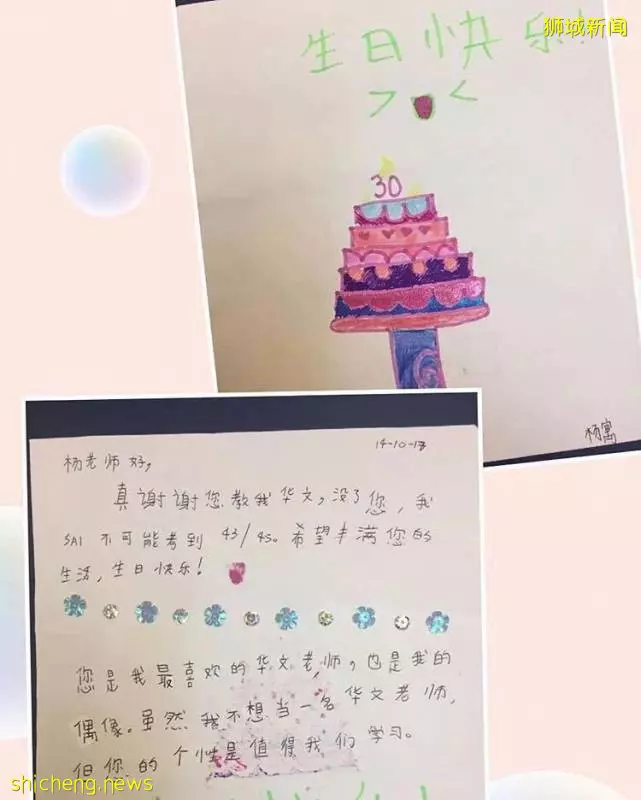 狮城新闻
生日快乐!
> <
30
杨寓
14-10-17
杨老师好,
真謝謝您教我华文,没了您,我
SA1 不可能考到 43/45。希望丰满您的
生活,生日快乐!
您是我最喜欢的华文老师,也是我的
偶像。虽然我不想当一名华文老师,
但您的个性是值得我们学习。
shicheng.news